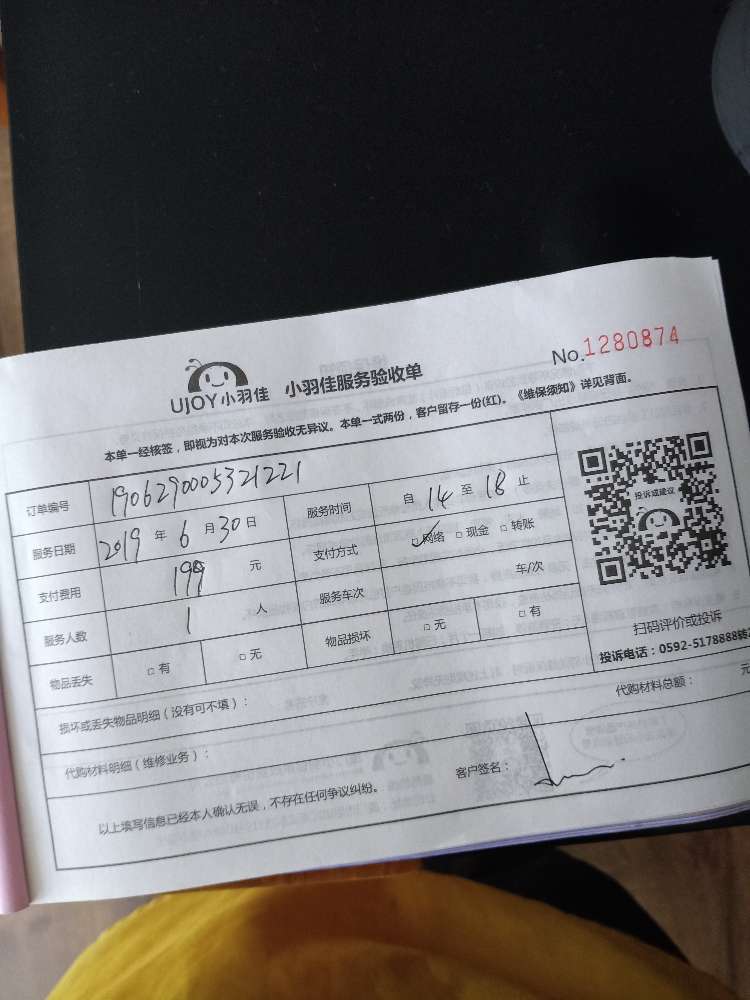 UJOY小羽佳 小羽佳服务验收单 No.1280874
本单一经核签，即视为对本次服务验收无异议。本单一式两份，客户留存一份(红)。《维保须知》详见背面。
订单编号 1906290005321221
服务日期 2019 年 6 月 30 日 服务时间 自 14 至 18 止
支付费用 199 元 支付方式 ☑网络 □现金 □转账
服务人数 1 人 服务车次 车/次
物品丢失 □有 □无 物品损坏 □无 □有
投诉或建议
扫码评价或投诉
投诉电话：0592-5178888转
损坏或丢失物品明细（没有可不填）：
代购材料明细（维修业务）： 代购材料总额： 元
以上填写信息已经本人确认无误，不存在任何争议纠纷。 客户签名：